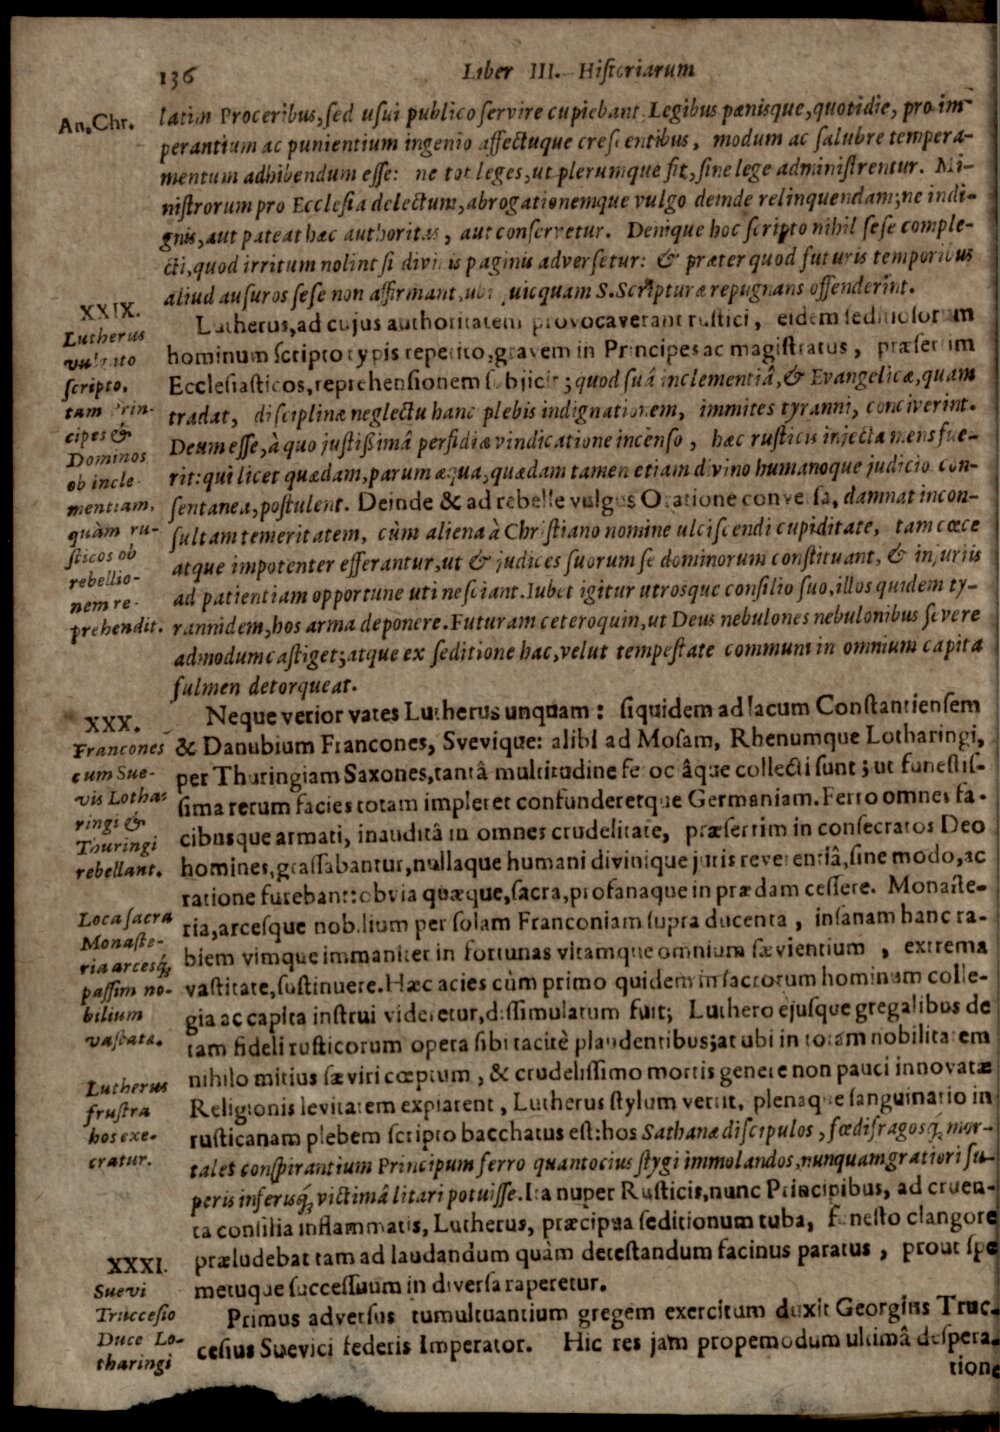 136 Liber III. Historiarum
An. Chr.
latim Proceribus, sed usui publico servire cupiebant. Legibus pœnisque, quotidie, pro im-
perantium ac punientium ingenio affectuque crescentibus, modum ac salubre tempera-
mentum adhibendum esse: ne tot leges, ut plerumque fit, sine lege administrentur. Mi-
nistrorum pro Ecclesia delectum, abrogationemque vulgo deinde relinquendam; ne indi-
gnis, aut pateat hæc authoritas, aut conservetur. Denique hoc scripto nihil sese comple-
cti, quod irritum nolint si divinis paginis adversetur: & præter quod futuris temporibus
aliud ausuros sese non affirmant, ubi quicquam S. Scripturæ repugnans offenderint.
XXIX.
Lutherus
vulgato
scripto,
tam Prin-
cipes &
Dominos
ob incle-
mentiam,
quàm ru-
sticos ob
rebellio-
nem re-
prehendit.
Lutherus, ad cujus authoritatem provocaverant rustici, eidem seditiosorum
hominum scripto typis repetito, gravem in Principes ac magistratus, præsertim
Ecclesiasticos, reprehensionem subjicit; quod suâ inclementiâ, & Evangelicæ, quam
tradat, disciplinæ neglectu hanc plebis indignationem, immites tyranni, conciverint.
Deum esse, à quo justißimâ perfidiæ vindicatione incenso, hæc rusticis injecta mens fue-
rit: qui licet quædam, parum æqua, quædam tamen etiam divino humanoque judicio con-
sentanea, postulent. Deinde & ad rebelle vulgus Oratione conversa, damnat incon-
sultam temeritatem, cùm aliena à Christiano nomine ulciscendi cupiditate, tam cœce
atque impotenter efferantur, ut & judices suorum se dominorum constituant, & injuriis
ad patientiam opportune uti nesciant. Iubet igitur utrosque consilio suo, illos quidem ty-
rannidem, hos arma deponere. Futuram ceteroquin, ut Deus nebulones nebulonibus severe
admodum castiget; atque ex seditione hac, velut tempestate communi in omnium capita
fulmen detorqueat.
XXX.
Francones
cum Sue-
vis Lotha-
ringi &
Thuringi
rebellant.
Loca sacra
Monaste-
ria arcesq;
passim no-
bilium
vastata.
Lutherus
frustra
hos exe-
cratur.
Neque verior vates Lutherus unquam: siquidem ad lacum Constantiensem
& Danubium Francones, Svevique: alibi ad Mosam, Rhenumque Lotharingi,
per Thuringiam Saxones, tantâ multitudine ferocîâque collecti sunt; ut funestis-
sima rerum facies totam impleret confunderetque Germaniam. Ferro omnes fa-
cibusque armati, inauditâ in omnes crudelitate, præsertim in consecratos Deo
homines, grassabantur, nullaque humani divinique juris reverentiâ, sine modo, ac
ratione furebant: obvia quæque, sacra, profanaque in prædam cessere. Monaste-
ria, arcesque nobilium per solam Franconiam supra ducenta, insanam hanc ra-
biem vimque immaniter in fortunas vitamque omnium sævientium, extrema
vastitate, sustinuere. Hæc acies cùm primo quidem in sacrorum hominum colle-
gia ac capita instrui videretur, dissimulatum fuit; Luthero ejusque gregalibus de
tam fideli rusticorum opera sibi tacitè plaudentibus; at ubi in totam nobilitatem
nihilo mitius sæviri cœptum, & crudelissimo mortis genere non pauci innovatæ
Religionis levitatem expiarent, Lutherus stylum vertit, plenaque sanguinario in
rusticanam plebem scripto bacchatus est: hos Sathanæ discipulos, fœdifragosq; mor-
tales conspirantium Principum ferro quantocius stygi immolandos, nunquam gratiori su-
peris inferisq; victimâ litari potuisse. Ita nuper Rusticis, nunc Principibus, ad cruen-
ta consilia inflammatis, Lutherus, præcipua seditionum tuba, funesto clangore
præludebat tam ad laudandum quàm detestandum facinus paratus, prout spe
metuque successuum in diversa raperetur.
XXXI.
Suevi
Truccesio
Duce Lo-
tharingi
Primus adversus tumultuantium gregem exercitum duxit Georgius Truc-
cesius Suevici federis Imperator. Hic res jam propemodum ultimâ despera-
tione